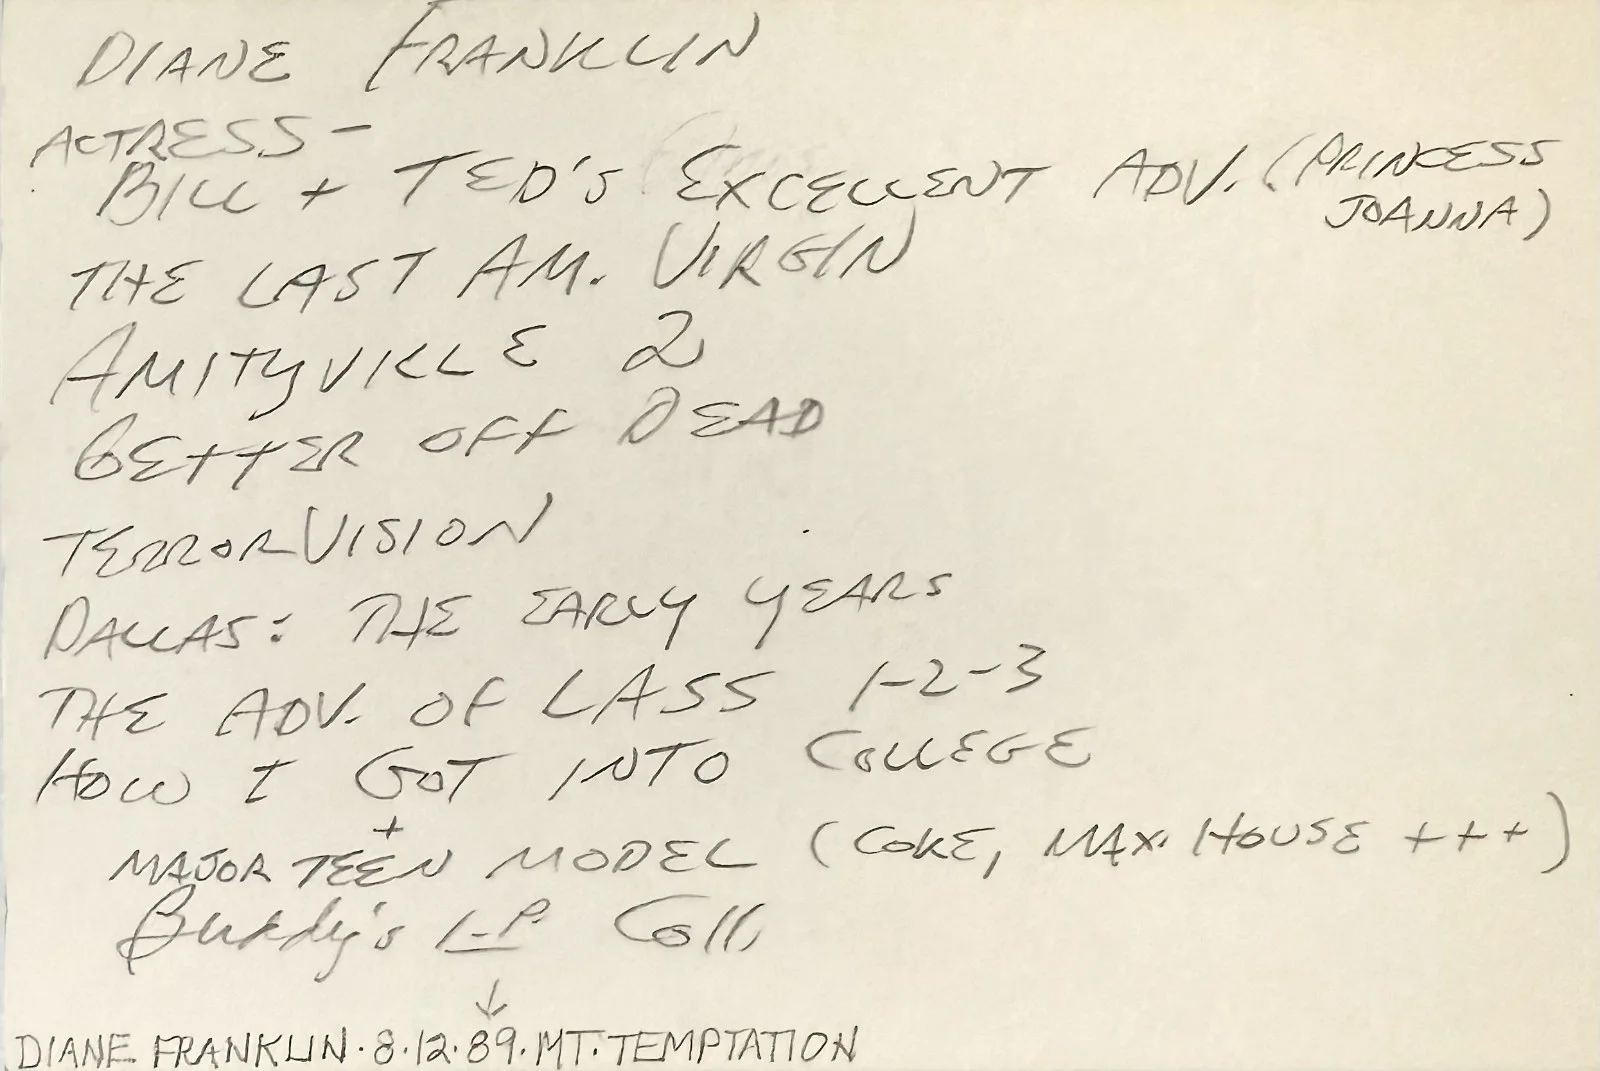 DIANE FRANKLIN
ACTRESS -
BILL + TED'S EXCELLENT ADV. (PRINCESS JOANNA)
THE LAST AM. VIRGIN
AMITYVILLE 2
BETTER OFF DEAD
TERRORVISION
DALLAS: THE EARLY YEARS
THE ADV. OF LASS 1-2-3
HOW I GOT INTO COLLEGE
+
MAJOR TEEN MODEL (COKE, MAX. HOUSE +++)
Buddy's L.P. Coll.
↓
DIANE FRANKLIN·8·12·89·MT·TEMPTATION